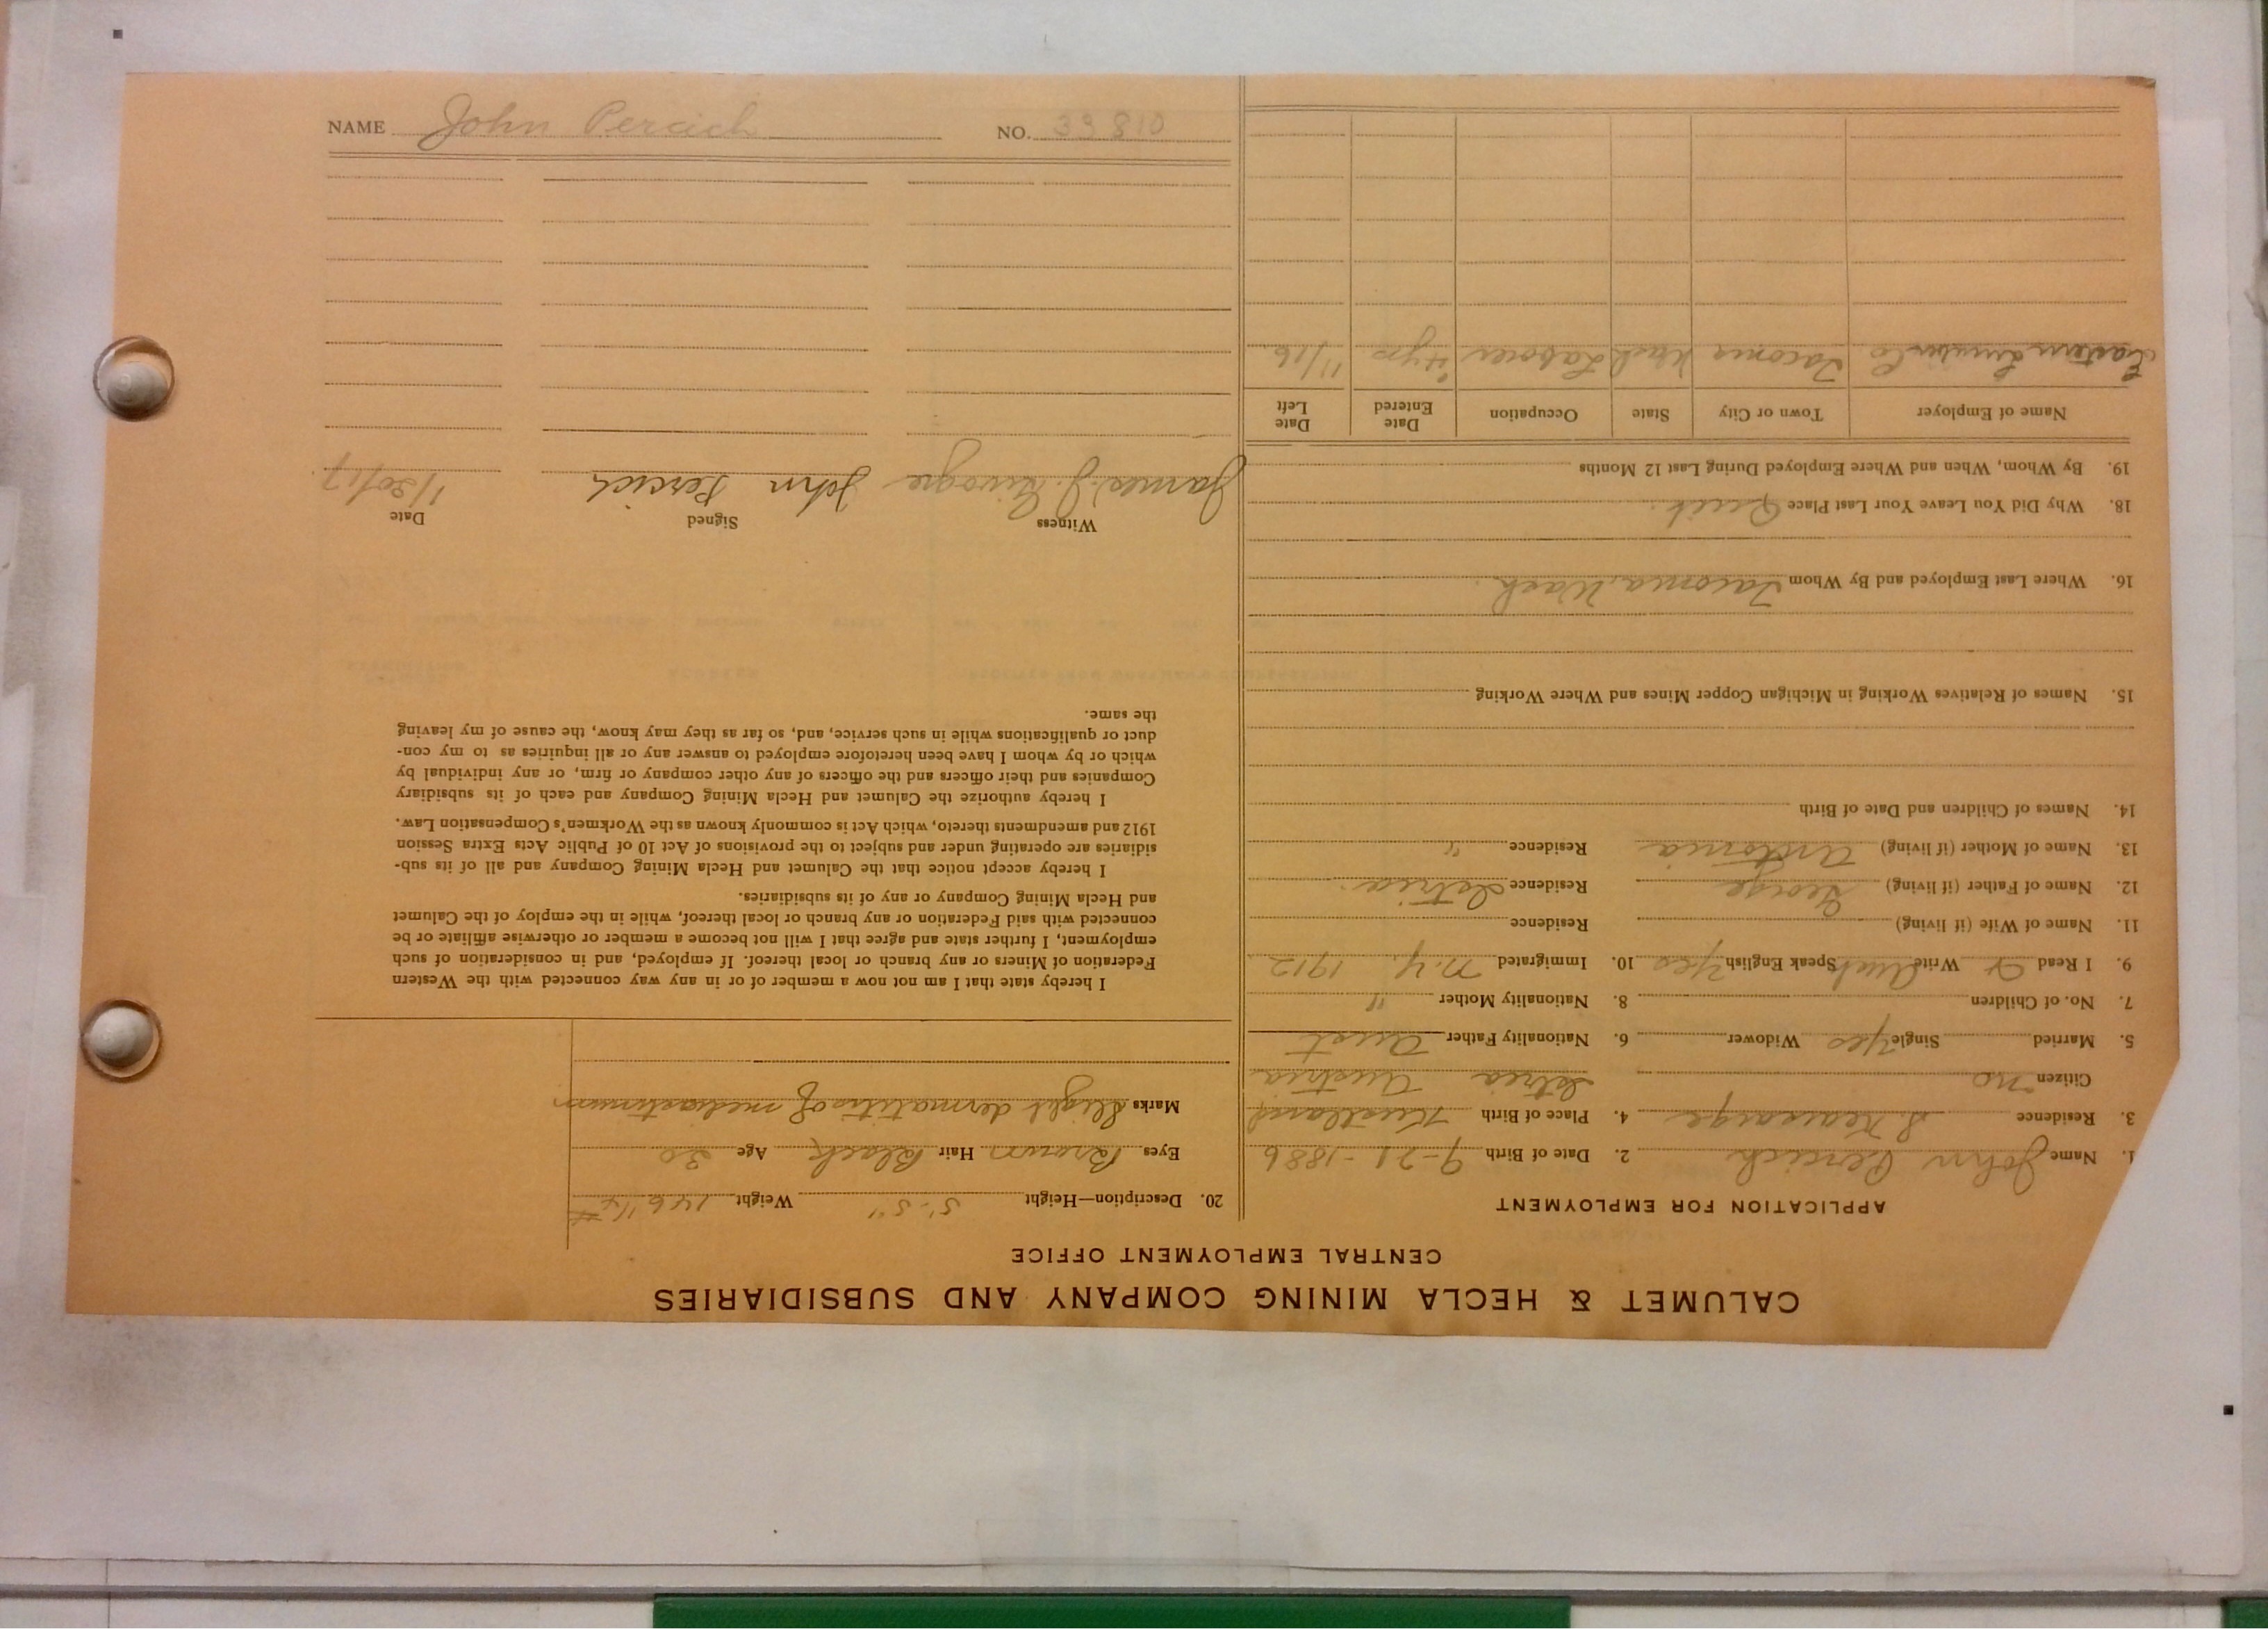 CALUMET & HECLA MINING COMPANY AND SUBSIDIARIES
CENTRAL EMPLOYMENT OFFICE
APPLICATION FOR EMPLOYMENT
1. Name John Percich 2. Date of Birth 9-21-1886
3. Residence S. Kearsarge 4. Place of Birth Kustland
Citizen no Istria Austria
5. Married Single Yes Widower 6. Nationality Father Aust
7. No. of Children 8. Nationality Mother "
9. I Read & Write Aust Speak English Yes 10. Immigrated N.Y. 1912
11. Name of Wife (if living) Residence
12. Name of Father (if living) George Residence Istria
13. Name of Mother (if living) Antonia Residence "
14. Names of Children and Date of Birth
15. Names of Relatives Working in Michigan Copper Mines and Where Working
16. Where Last Employed and By Whom Tacoma, Wash.
18. Why Did You Leave Your Last Place Quit.
19. By Whom, When and Where Employed During Last 12 Months
Name of Employer Town or City State Occupation Date Entered Date Left
Eastern Lumber Co. Tacoma Wash Laborer 4 yrs 11/16
20. Description—Height 5'-5" Weight 146 1/4 #
Eyes Brown Hair Black Age 30
Marks Slight dermatitis of
I hereby state that I am not now a member of or in any way connected with the Western
Federation of Miners or any branch or local thereof. If employed, and in consideration of such
employment, I further state and agree that I will not become a member or otherwise affiliate or be
connected with said Federation or any branch or local thereof, while in the employ of the Calumet
and Hecla Mining Company or any of its subsidiaries.
I hereby accept notice that the Calumet and Hecla Mining Company and all of its sub-
sidiaries are operating under and subject to the provisions of Act 10 of Public Acts Extra Session
1912 and amendments thereto, which Act is commonly known as the Workmen's Compensation Law.
I hereby authorize the Calumet and Hecla Mining Company and each of its subsidiary
Companies and their officers and the officers of any other company or firm, or any individual by
which or by whom I have been heretofore employed to answer any or all inquiries as to my con-
duct or qualifications while in such service, and, so far as they may know, the cause of my leaving
the same.
Witness Signed Date
James J. John Percich 1/30/17
NAME John Percich NO. 33810